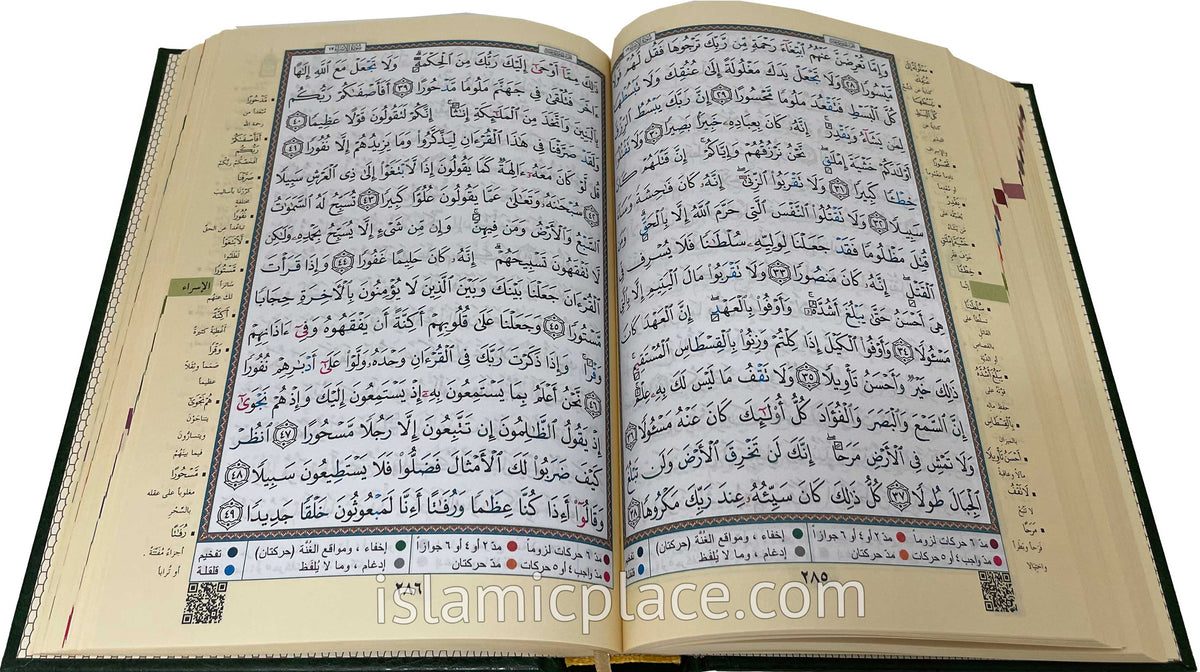 وَإِمَّا تُعْرِضَنَّ عَنْهُمُ ٱبْتِغَآءَ رَحْمَةٍ مِّن رَّبِّكَ تَرْجُوهَا فَقُل لَّهُمْ
مَّيْسُورًا ٢٨ وَلَا تَجْعَلْ يَدَكَ مَغْلُولَةً إِلَىٰ عُنُقِكَ وَلَا تَبْسُطْهَا
كُلَّ ٱلْبَسْطِ فَتَقْعُدَ مَلُومًا مَّحْسُورًا ٢٩ إِنَّ رَبَّكَ يَبْسُطُ ٱلرِّزْقَ
لِمَن يَشَآءُ وَيَقْدِرُ إِنَّهُۥ كَانَ بِعِبَادِهِۦ خَبِيرًۢا بَصِيرًا ٣٠ وَلَا
أَوْلَٰدَكُمْ خَشْيَةَ إِمْلَٰقٍ نَّحْنُ نَرْزُقُهُمْ وَإِيَّاكُمْ إِنَّ قَتْلَهُمْ كَانَ
خِطْـًٔا كَبِيرًا ٣١ وَلَا تَقْرَبُوا۟ ٱلزِّنَىٰٓ إِنَّهُۥ كَانَ فَٰحِشَةً وَسَآءَ
سَبِيلًا ٣٢ وَلَا تَقْتُلُوا۟ ٱلنَّفْسَ ٱلَّتِى حَرَّمَ ٱللَّهُ إِلَّا بِٱلْحَقِّ
قُتِلَ مَظْلُومًا فَقَدْ جَعَلْنَا لِوَلِيِّهِۦ سُلْطَٰنًا فَلَا يُسْرِف فِّى
ٱلْقَتْلِ إِنَّهُۥ كَانَ مَنصُورًا ٣٣ وَلَا تَقْرَبُوا۟ مَالَ ٱلْيَتِيمِ إِلَّا
هِىَ أَحْسَنُ حَتَّىٰ يَبْلُغَ أَشُدَّهُۥ وَأَوْفُوا۟ بِٱلْعَهْدِ إِنَّ ٱلْعَهْدَ كَانَ
مَسْـُٔولًا ٣٤ وَأَوْفُوا۟ ٱلْكَيْلَ إِذَا كِلْتُمْ وَزِنُوا۟ بِٱلْقِسْطَاسِ ٱلْمُسْتَقِيمِ
ذَٰلِكَ خَيْرٌ وَأَحْسَنُ تَأْوِيلًا ٣٥ وَلَا تَقْفُ مَا لَيْسَ لَكَ بِهِۦ عِلْمٌ
إِنَّ ٱلسَّمْعَ وَٱلْبَصَرَ وَٱلْفُؤَادَ كُلُّ أُو۟لَٰٓئِكَ كَانَ عَنْهُ مَسْـُٔولًا ٣٦
وَلَا تَمْشِ فِى ٱلْأَرْضِ مَرَحًا إِنَّكَ لَن تَخْرِقَ ٱلْأَرْضَ وَلَن تَبْلُغَ
ٱلْجِبَالَ طُولًا ٣٧ كُلُّ ذَٰلِكَ كَانَ سَيِّئُهُۥ عِندَ رَبِّكَ مَكْرُوهًا ٣٨
مدّ ٦ حركات لزوماً مدّ ٢ أو ٤ أو ٦ جوازاً إخفاء ، ومواقع الغُنَّة (حركتان)
مدّ واجب ٤ أو ٥ حركات مدّ حركتان إدغام ، وما لا يُلفَظ
٢٨٥
ذَٰلِكَ مِمَّآ أَوْحَىٰٓ إِلَيْكَ رَبُّكَ مِنَ ٱلْحِكْمَةِ وَلَا تَجْعَلْ مَعَ ٱللَّهِ إِلَٰهًا
ءَاخَرَ فَتُلْقَىٰ فِى جَهَنَّمَ مَلُومًا مَّدْحُورًا ٣٩ أَفَأَصْفَىٰكُمْ رَبُّكُم
بِٱلْبَنِينَ وَٱتَّخَذَ مِنَ ٱلْمَلَٰٓئِكَةِ إِنَٰثًا إِنَّكُمْ لَتَقُولُونَ قَوْلًا عَظِيمًا ٤٠
وَلَقَدْ صَرَّفْنَا فِى هَٰذَا ٱلْقُرْءَانِ لِيَذَّكَّرُوا۟ وَمَا يَزِيدُهُمْ إِلَّا نُفُورًا ٤١
قُل لَّوْ كَانَ مَعَهُۥٓ ءَالِهَةٌ كَمَا يَقُولُونَ إِذًا لَّٱبْتَغَوْا۟ إِلَىٰ ذِى ٱلْعَرْشِ سَبِيلًا
٤٢ سُبْحَٰنَهُۥ وَتَعَٰلَىٰ عَمَّا يَقُولُونَ عُلُوًّا كَبِيرًا ٤٣ تُسَبِّحُ لَهُ ٱلسَّمَٰوَٰتُ
ٱلسَّبْعُ وَٱلْأَرْضُ وَمَن فِيهِنَّ وَإِن مِّن شَىْءٍ إِلَّا يُسَبِّحُ بِحَمْدِهِۦ وَلَٰكِن
لَّا تَفْقَهُونَ تَسْبِيحَهُمْ إِنَّهُۥ كَانَ حَلِيمًا غَفُورًا ٤٤ وَإِذَا قَرَأْتَ
ٱلْقُرْءَانَ جَعَلْنَا بَيْنَكَ وَبَيْنَ ٱلَّذِينَ لَا يُؤْمِنُونَ بِٱلْءَاخِرَةِ حِجَابًا
مَّسْتُورًا ٤٥ وَجَعَلْنَا عَلَىٰ قُلُوبِهِمْ أَكِنَّةً أَن يَفْقَهُوهُ وَفِىٓ ءَاذَانِهِمْ
وَقْرًا وَإِذَا ذَكَرْتَ رَبَّكَ فِى ٱلْقُرْءَانِ وَحْدَهُۥ وَلَّوْا۟ عَلَىٰٓ أَدْبَٰرِهِمْ نُفُورًا
٤٦ نَّحْنُ أَعْلَمُ بِمَا يَسْتَمِعُونَ بِهِۦٓ إِذْ يَسْتَمِعُونَ إِلَيْكَ وَإِذْ هُمْ نَجْوَىٰٓ
إِذْ يَقُولُ ٱلظَّٰلِمُونَ إِن تَتَّبِعُونَ إِلَّا رَجُلًا مَّسْحُورًا ٤٧ ٱنظُرْ
كَيْفَ ضَرَبُوا۟ لَكَ ٱلْأَمْثَالَ فَضَلُّوا۟ فَلَا يَسْتَطِيعُونَ سَبِيلًا ٤٨
وَقَالُوٓا۟ أَءِذَا كُنَّا عِظَٰمًا وَرُفَٰتًا أَءِنَّا لَمَبْعُوثُونَ خَلْقًا جَدِيدًا ٤٩
مدّ ٦ حركات لزوماً مدّ ٢ أو ٤ أو ٦ جوازاً إخفاء ، ومواقع الغُنَّة (حركتان) تفخيم
مدّ واجب ٤ أو ٥ حركات مدّ حركتان إدغام ، وما لا يُلفَظ قلقلة
٢٨٦
مَدْحُورًا
مبعداً من
رحمة الله
أَفَأَصْفَىٰكُمْ
رَبُّكُم
صَرَّفْنَا
كررنا بأساليب
مختلفة
نُفُورًا
تباعداً عن الحق
لَّٱبْتَغَوْا۟
لطلبوا
مَّسْتُورًا
ساتراً
الإسراء
أَكِنَّةً
أغطية كثيرة
وَقْرًا
صمماً وثقلاً
عظيماً
هُمْ نَجْوَىٰٓ
يتناجون
ويتسارّون
فيما بينهم
مَّسْحُورًا
مغلوباً على عقله
بالسحر
رُفَٰتًا
أجزاءً مفتتة
أو تراباً
islamicplace.com